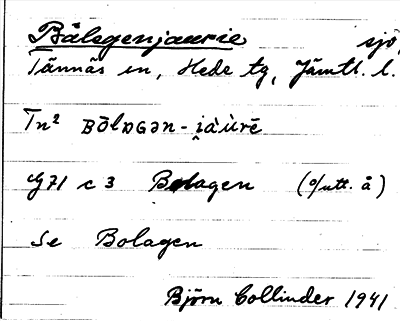 Bålsgenjaurie sjö,
Tännäs sn, Hede tg, Jämtl. l.
Tn² BōlDGən-i̯àùrē
G71 c 3 Bolagen (o/utt. å)
Se Bolagen
Björn Collinder 1941